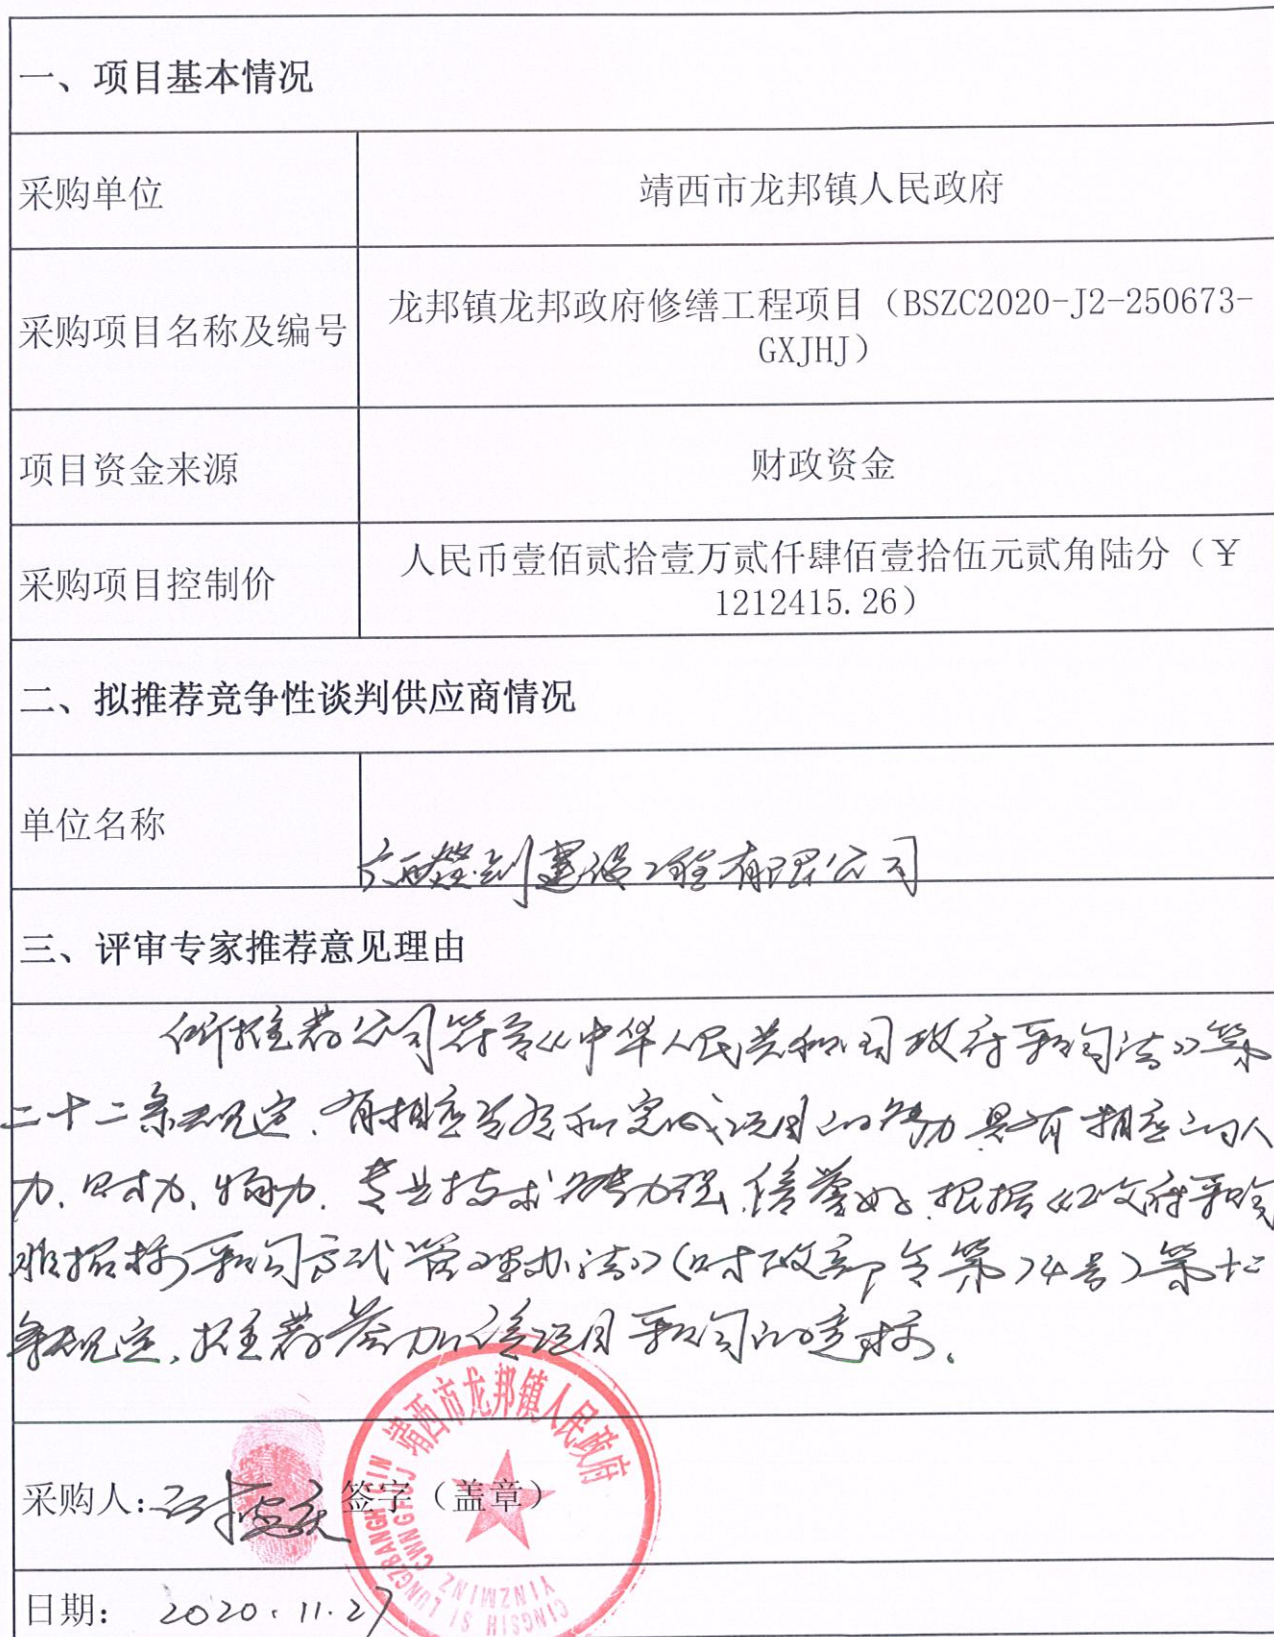 一、项目基本情况
采购单位
靖西市龙邦镇人民政府
采购项目名称及编号
龙邦镇龙邦政府修缮工程项目（BSZC2020-J2-250673-
GXJHJ）
项目资金来源
财政资金
采购项目控制价
人民币壹佰贰拾壹万贰仟肆佰壹拾伍元贰角陆分（￥
1212415.26）
二、拟推荐竞争性谈判供应商情况
单位名称
建设工程有限公司
三、评审专家推荐意见理由
所推荐公司符合《中华人民共和国政府采购法》第
二十二条规定，有相应资质和完成项目的能力具有相应的人
力、财力、物力，专业技术能力强，信誉好，根据《政府采购
非招标采购方式管理办法》（财政部令第74号）第十二
条规定，推荐参加该项目采购的竞标。
靖西市龙邦镇人民政府
CINGSIH SI LUNGZBANGH CIN
YINZMINZ CWNGFUJ
采购人：
签字（盖章）
日期： 2020.11.27